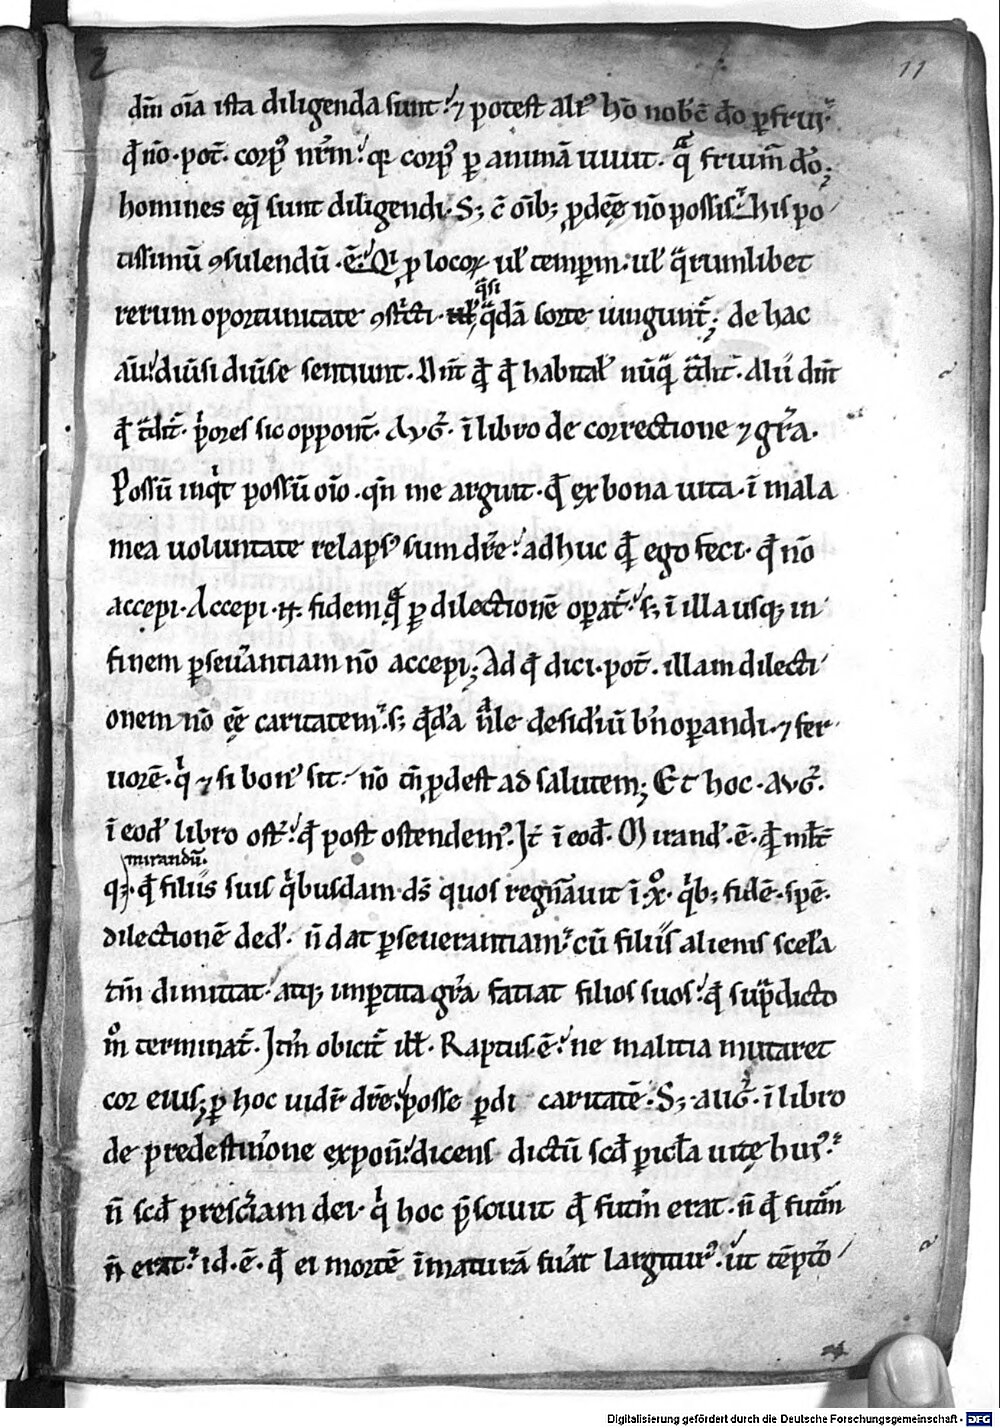 2 11
dm̄ oīa ista diligenda sunt. ⁊ potest alit᷒ hō nobc̄ dō ꝑfrui.
q̄ nō. pot̄. corpꝰ nr̄m. qꝛ corpꝰ ꝑ animā uiuit. qͣ fruim̄ dō.
homines eqͣ sunt diligendi. S; c̄ oīb; ꝓdeē nō possis. his po
tissimū ꝯsulendū. ē. Qⁱ ꝓ locoꝝ ul̄ temꝑm. ul̄ qͣrumlibet
qͣsi
rerum oportunitate ꝯstⁱcti. qͣdā sorte iungunt̄; de hac
aū. diu̓si diu̓se sentiunt. Dn̄t qͥ q̄ habitaꝰ nūqͣ tͣdit̄. Alii dn̄t
q̄ tͣdit̄. pⁱores sic oppont̄. AVG̓. ī libro de correctione ⁊ gr̄a.
Possū inqͥt possū oīo. qn̄ me arguit. q̄ ex bona uita. ī mala
mea uoluntate relapsꝰ sum dr̄e. adhuc q̄ ego feci. q̄ nō
accepi. Accepi. n̄. fidem q̄ ꝑ dilectionē oꝑat̄. s; ī illa usq; in
finem ꝑseu̓antiam nō accepi; Ad q̄ dici. pot̄. illam dilecti
onem nō eē caritatem. s; qͣdā nͣle desid̓iū bn̄ oꝑandi. ⁊ fer
uorē. qͥ ⁊ si bonꝰ sit. nō tn̄ ꝓdest ad salutem; Et hoc. AVG̓.
ī eod̓ libro ost̄. q̄ post ostendemꝰ. Jt̄ ī eod̓. Mirand̓. ē. q̄ ml̄t
mirandū.
q;. q̄ filiis suis qⁱbusdam ds̄ quos regn̄auit ī. xͦ. qⁱb; fidē. spē.
dilectionē ded̓. n̄ dat ꝑseuerantiam. cū filiis alienis scel̓a
tm̄ dimittat. atq; inꝑtita gr̄a fatiat filios suos. q̄ supͣdicto
mͦ terminat̄. Jtm̄ obicit̄ ill̄. Raptus. ē. ne malitia mutaret
cor eius; ꝑ hoc uidet̄ dr̄e. posse ꝑdi caritatē. S;. auG̓. ī libro
de predestin̓one expon̄. dicens dictū scd̄ ꝑicl̄a uitę huiꝰ.
n̄ scd̄ prescīam dei. qͥ hoc p̄sciuit q̄ futm̄ erat. n̄ q̄ futm̄
n̄ erat. id. ē. q̄ ei mortē īmaturā fu̓at largiturꝰ. ut tēpto
Digitalisierung gefördert durch die Deutsche Forschungsgemeinschaft - DFG